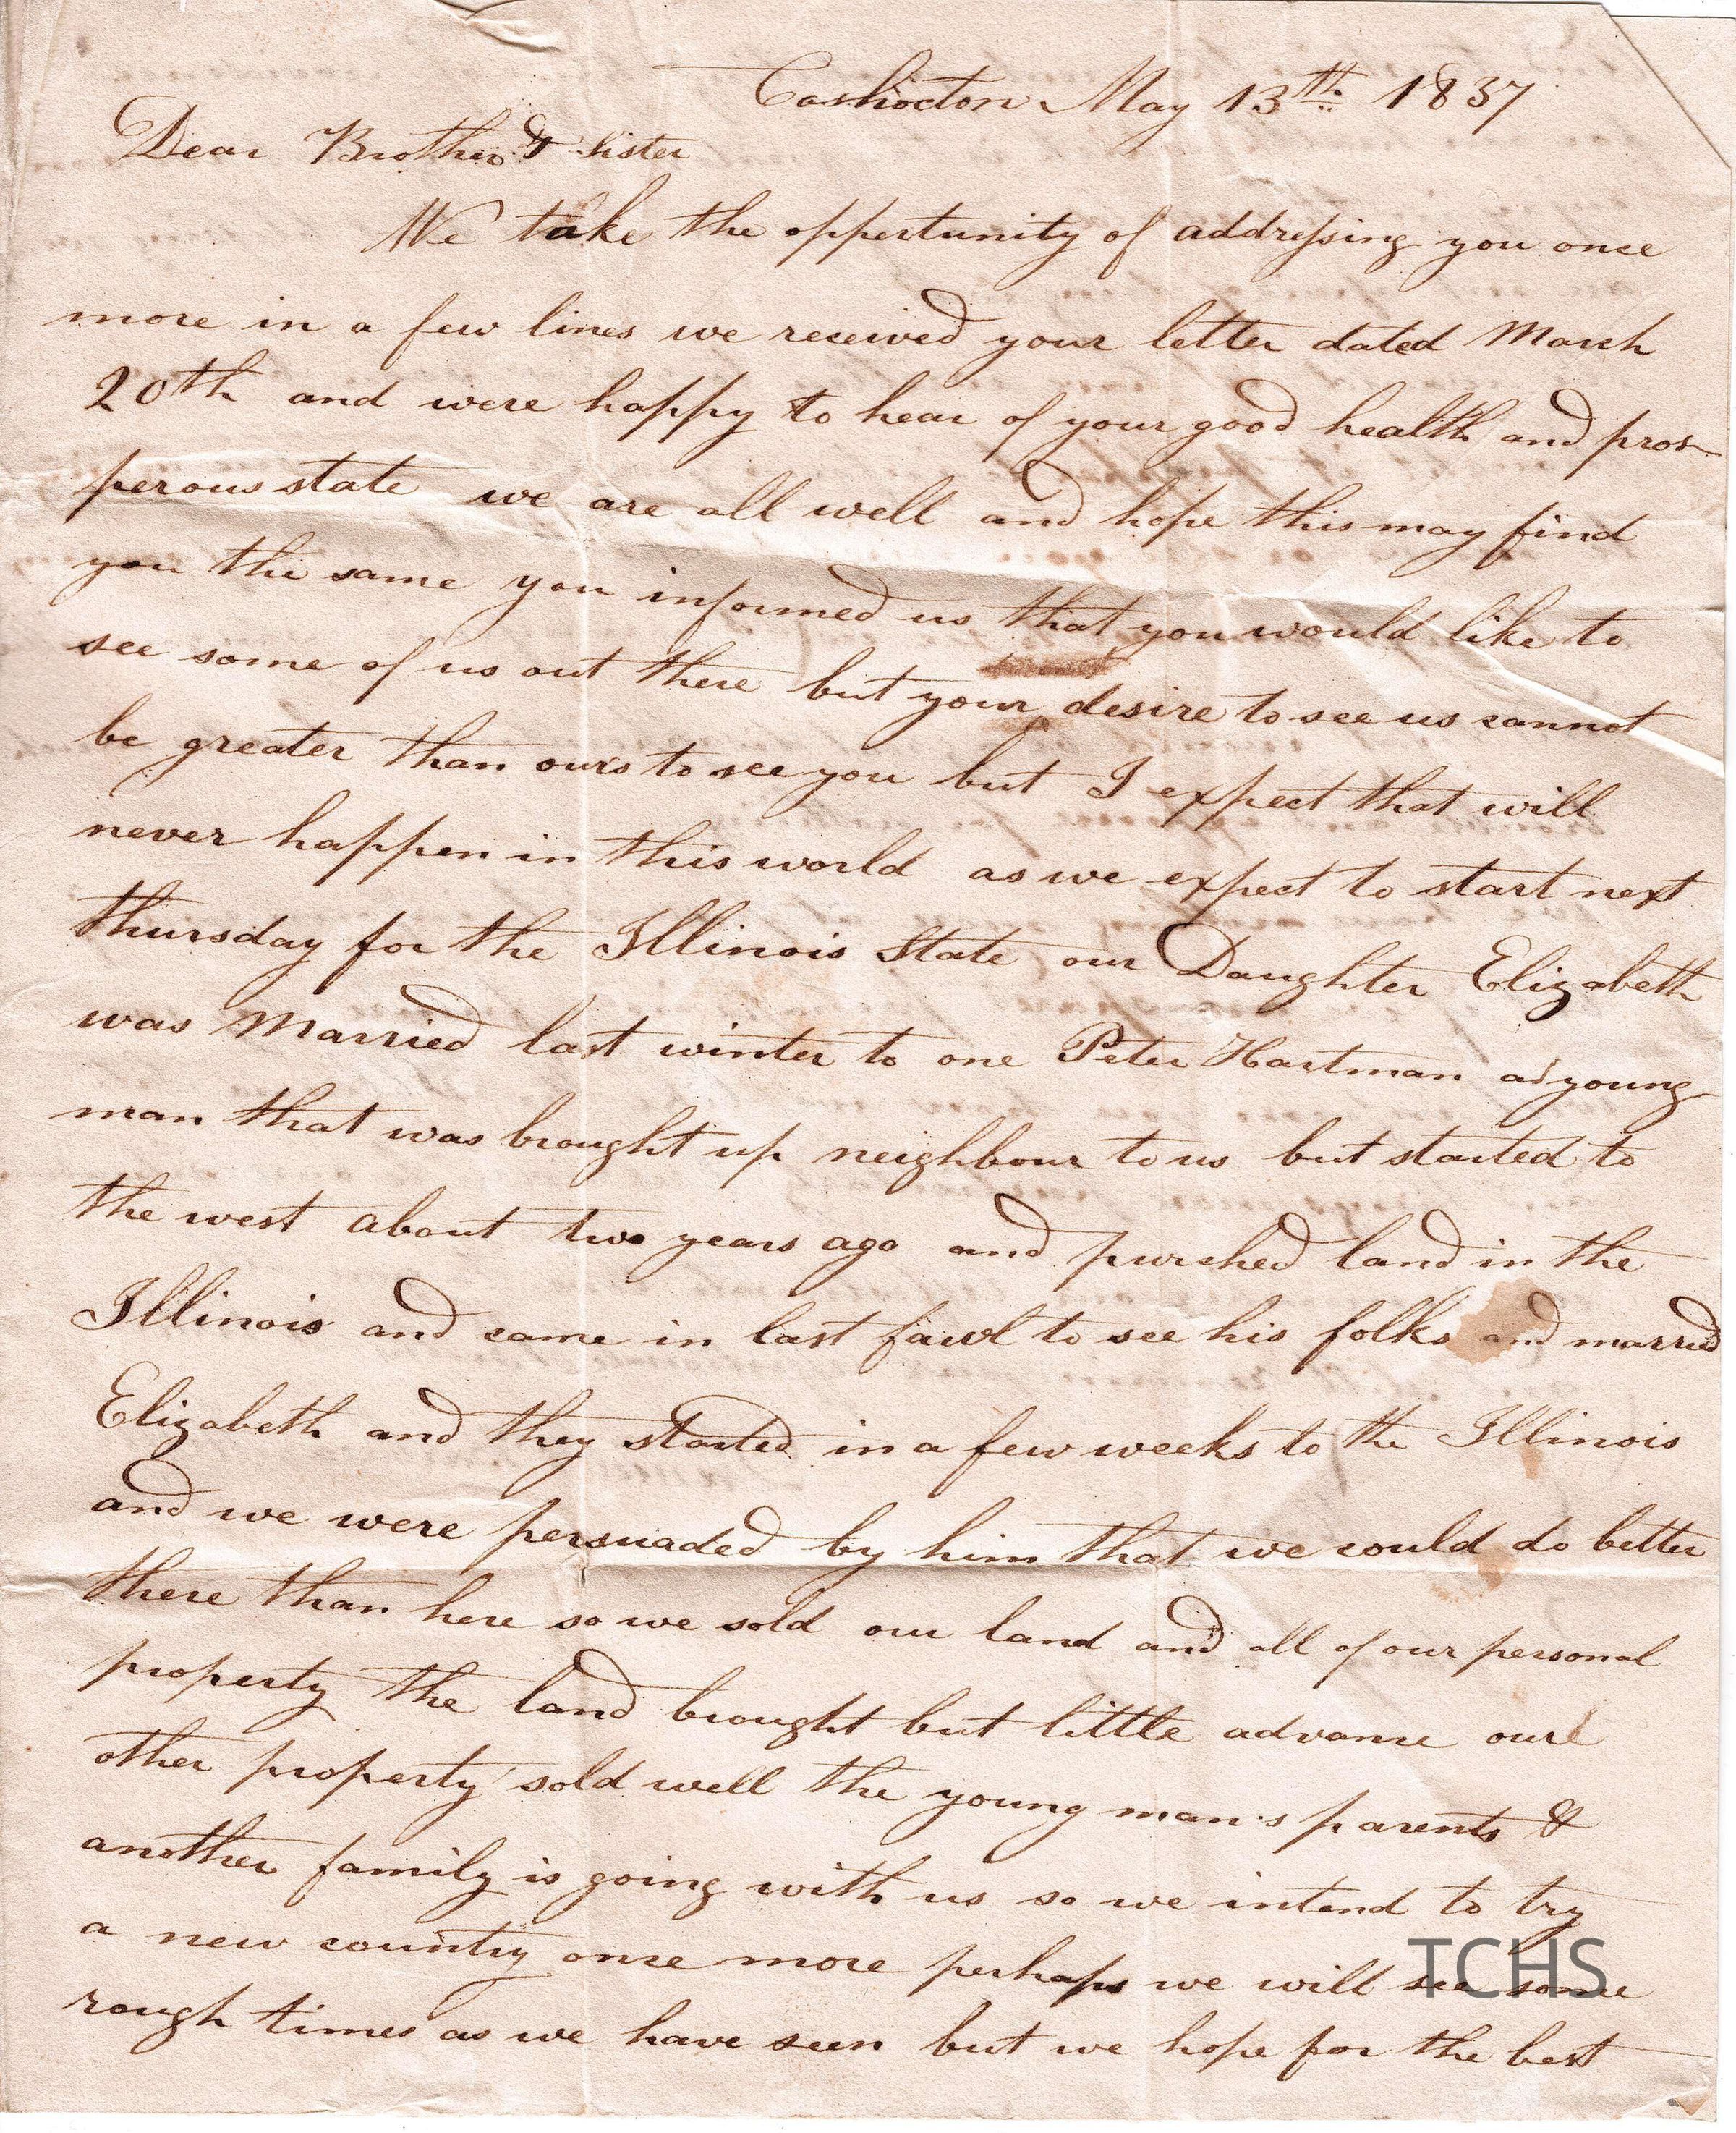 Coshocton May 13th 1837
Dear Brother & Sister
We take the oppertunity of addressing you once
more in a few lines we received your letter dated March
20th and were happy to hear of your good health and pros-
perous state we are all well and hope this may find
you the same you informed us that you would like to
see some of us out there but your desire to see us cannot
be greater than ours to see you but I expect that will
never happen in this world as we expect to start next
thursday for the Illinois State our Daughter Elizabeth
was Married last winter to one Peter Hartman a young
man that was brought up neighbour to us but started to
the west about two years ago and purched land in the
Illinois and came in last fawl to see his folks and married
Elizabeth and they started in a few weeks to the Illinois
and we were persuaded by him that we could do better
there than here so we sold our land and all of our personal
property the land brought but little advance our
other property sold well the young man's parents &
another family is going with us so we intend to try
a new country once more perhaps we will see some
rough times as we have seen but we hope for the best
TCHS